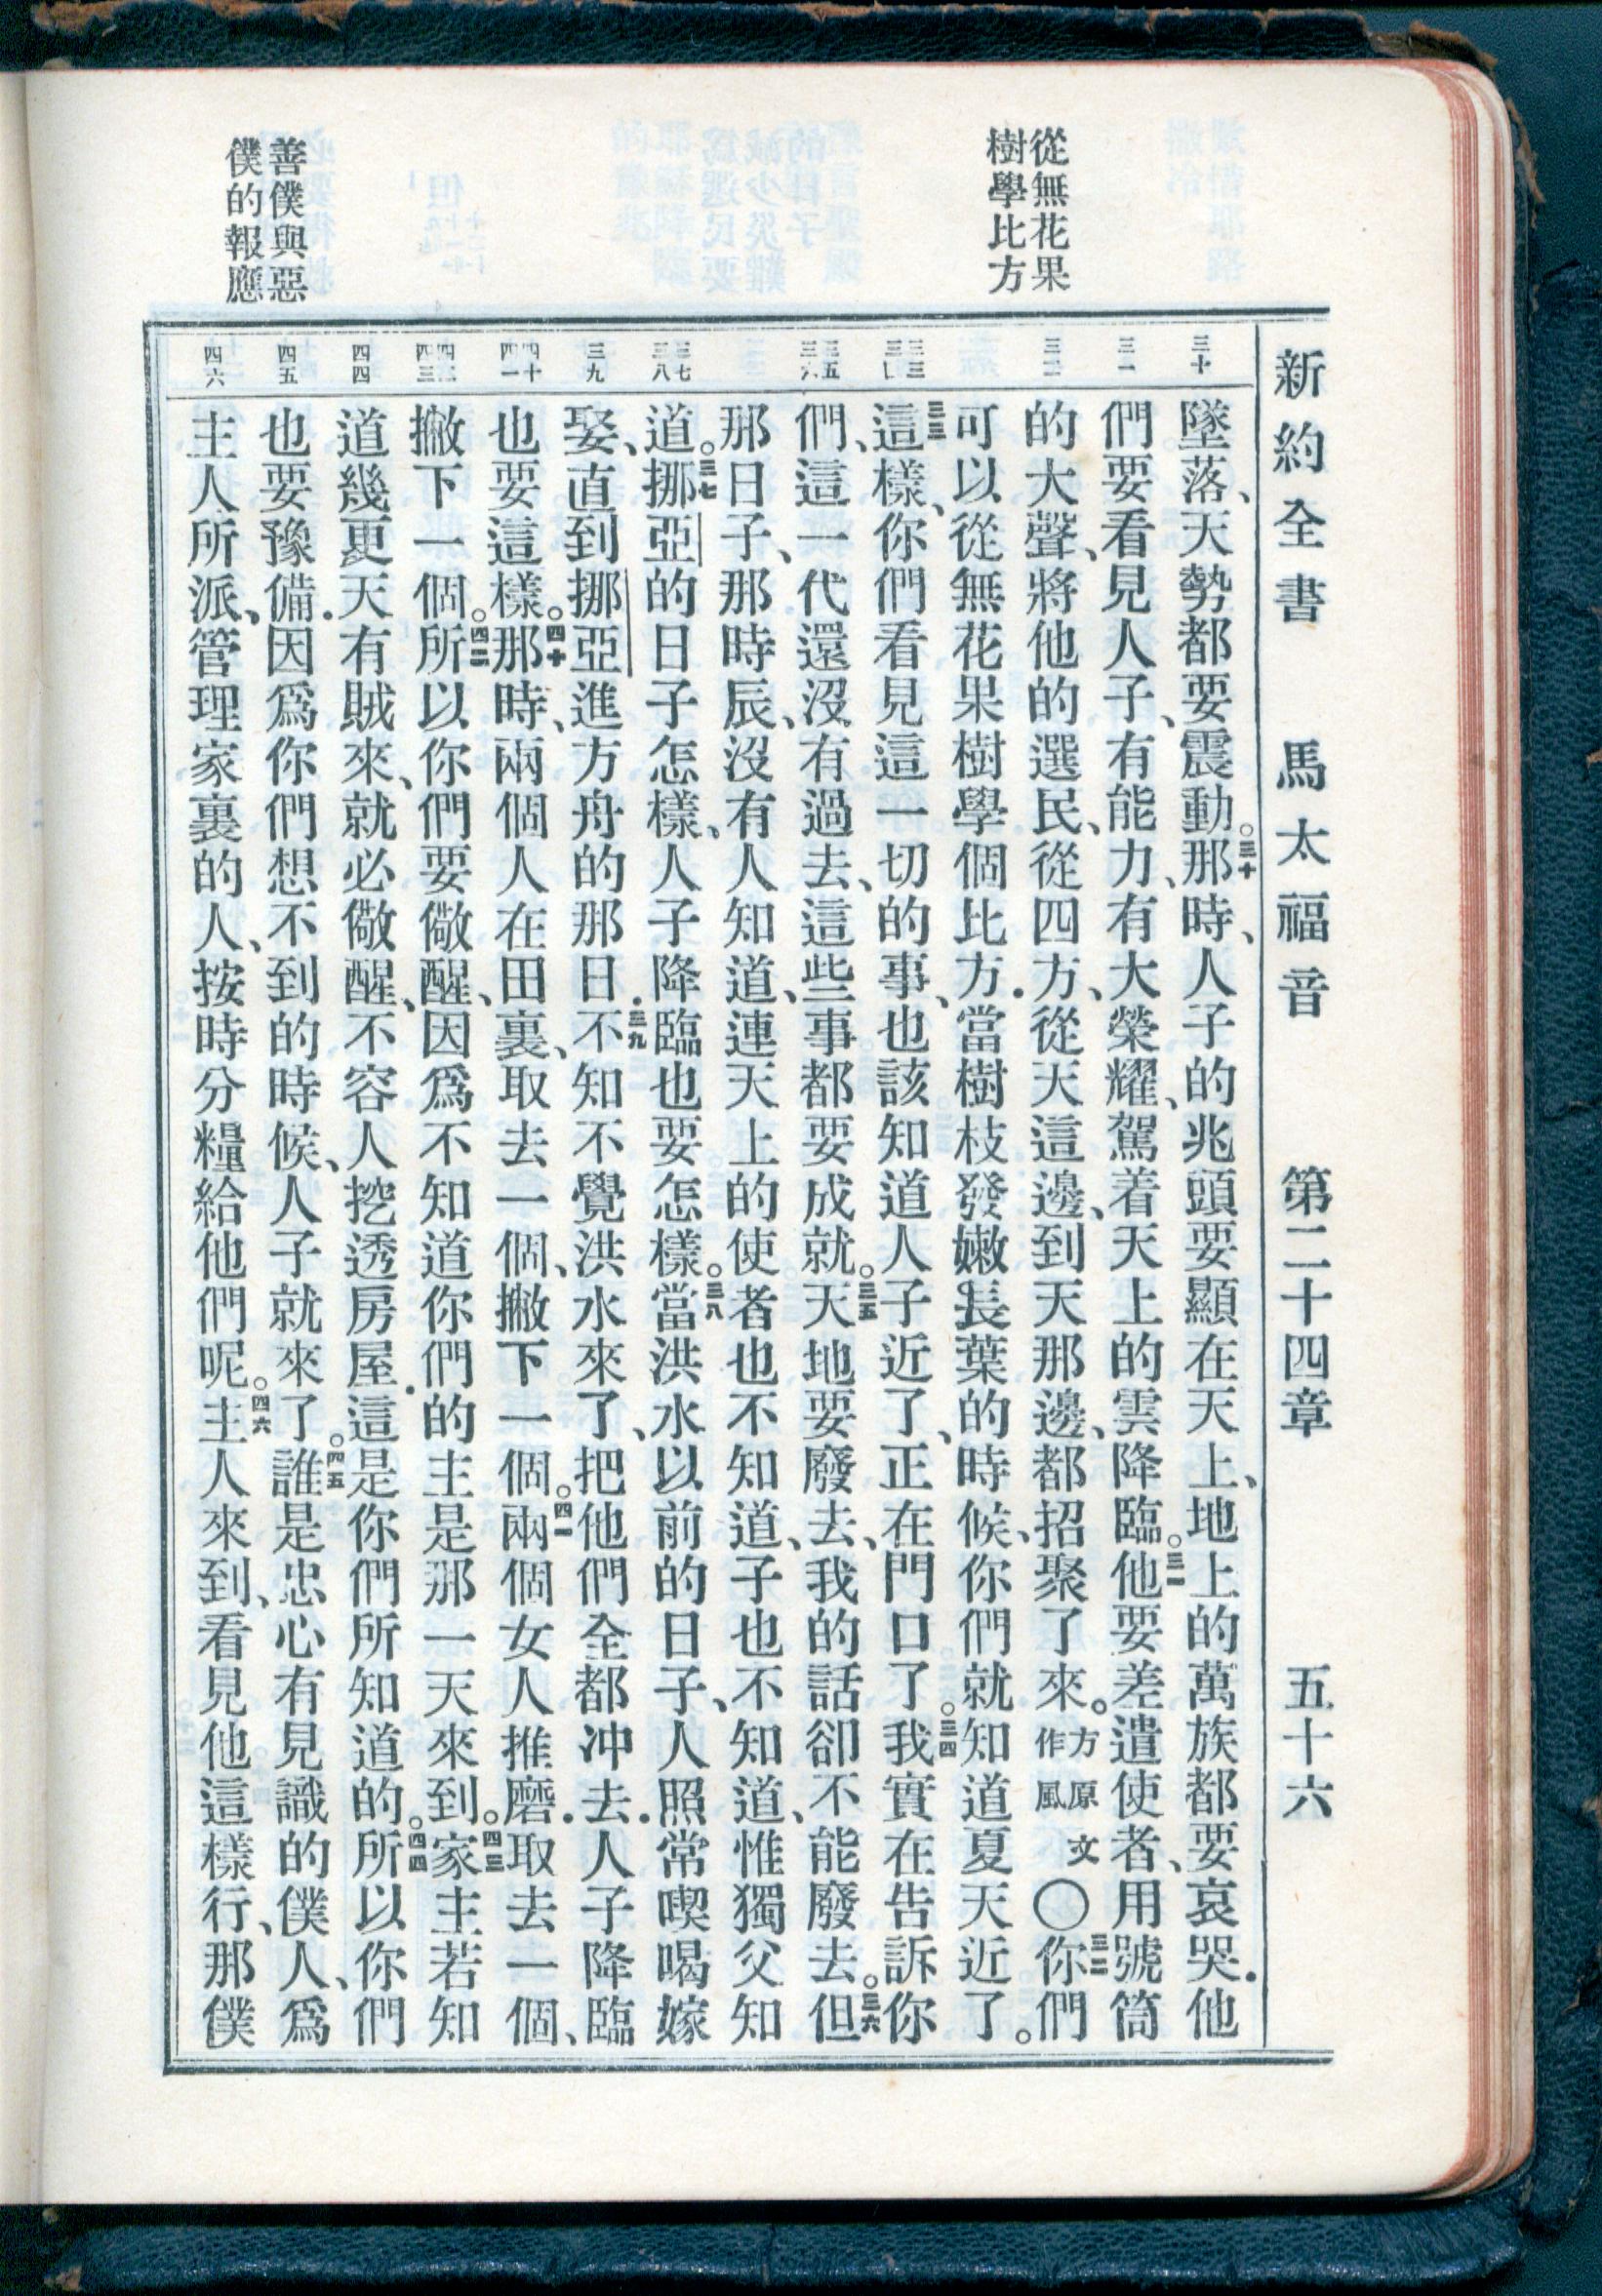 新約全書 馬太福音 第二十四章 五十六
從無花果
樹學比方
善僕與惡
僕的報應
三十
三一
三二
三三
三四
三五
三六
三七
三八
三九
四十
四一
四二
四三
四四
四五
四六
墜落、天勢都要震動。三十那時、人子的兆頭要顯在天上、地上的萬族都要哀哭．他
們要看見人子、有能力、有大榮耀、駕着天上的雲降臨。三一他要差遣使者、用號筒
的大聲、將他的選民、從四方、從天這邊、到天那邊、都招聚了來。方原文作風〇三二你們
可以從無花果樹學個比方．當樹枝發嫩長葉的時候、你們就知道夏天近了。
三三這樣、你們看見這一切的事、也該知道人子近了、正在門口了。三四我實在告訴你
們、這一代還沒有過去、這些事都要成就。三五天地要廢去、我的話卻不能廢去。三六但
那日子、那時辰、沒有人知道、連天上的使者也不知道、子也不知道、惟獨父知
道。三七挪亞的日子怎樣、人子降臨也要怎樣。三八當洪水以前的日子、人照常喫喝嫁
娶、直到挪亞進方舟的那日．三九不知不覺洪水來了、把他們全都冲去．人子降臨
也要這樣。四十那時、兩個人在田裏、取去一個、撇下一個。四一兩個女人推磨．取去一個、
撇下一個。四二所以你們要儆醒、因爲不知道你們的主是那一天來到。四三家主若知
道幾更天有賊來、就必儆醒、不容人挖透房屋．這是你們所知道的。四四所以你們
也要豫備．因爲你們想不到的時候、人子就來了。四五誰是忠心有見識的僕人、爲
主人所派、管理家裏的人、按時分糧給他們呢。四六主人來到、看見他這樣行、那僕